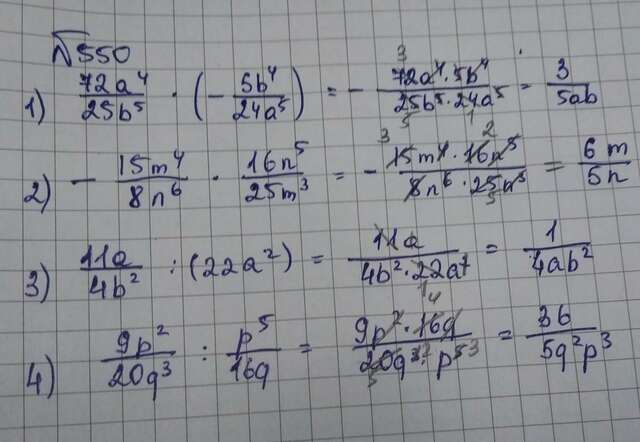 №550
1) 72a⁴/25b⁵ · (− 5b⁴/24a⁵) = − 72a⁴·5b⁴/25b⁵·24a⁵ = 3/5ab
2) − 15m⁴/8n⁶ · 16n⁵/25m³ = − 15m⁴·16n⁵/8n⁶·25n³ = 6m/5n
3) 11a/4b² : (22a²) = 11a/4b²·22a² = 1/4ab²
4) 9p²/20q³ : p⁵/16q = 9p²·16q/20q³·p⁵ = 36/5q²p³